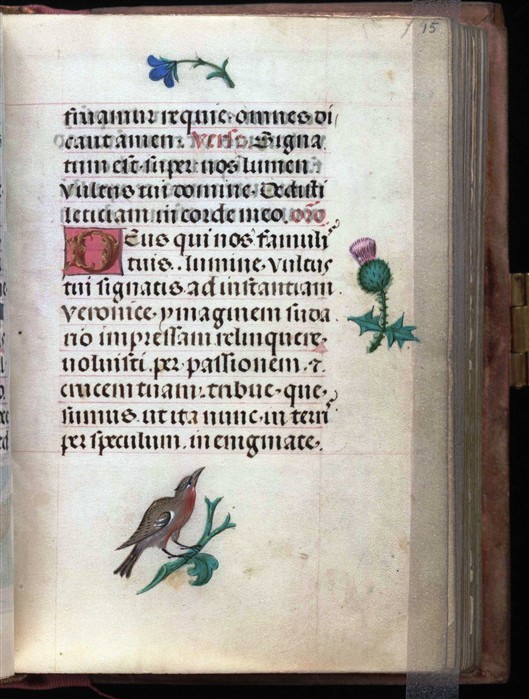 15
fruamur requie. omnes di
cant amen. Vers. Signa
tum est super nos lumen
vultus tui domine. Dedisti
leticiam in corde meo. oro
Deus qui nos famuli
tuis. lumine. vultus
tui signatis. ad instantiam
veronice. ymaginem suda
rio impressam relinquere.
voluisti. per. passionem. ⁊.
crucem tuam. tribue. que
sumus. ut ita nunc. in terri
per speculum. in enigmate.